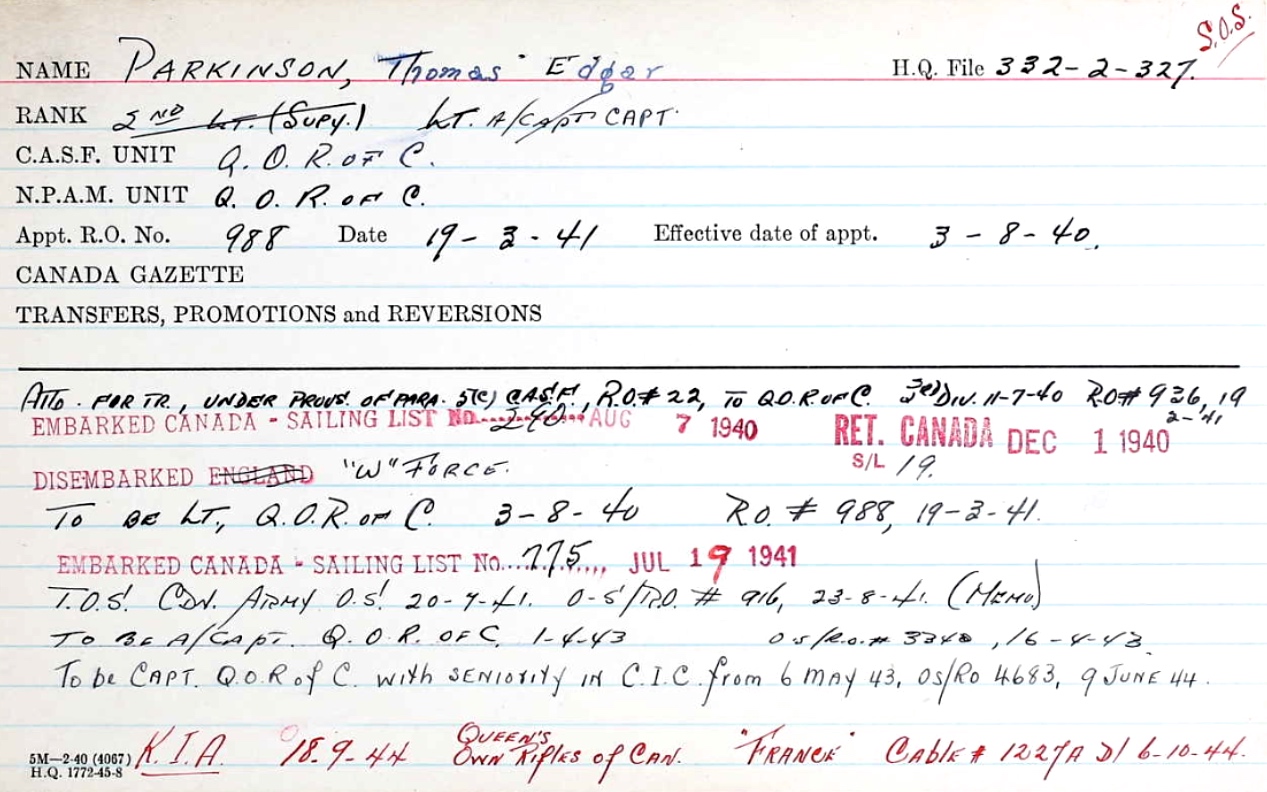 S.O.S.
NAME PARKINSON, Thomas Edgar H.Q. File 332-2-327.
RANK 2ND LT. (SUPY.) LT. A/CAPT CAPT.
C.A.S.F. UNIT Q. O. R. OF C.
N.P.A.M. UNIT Q. O. R. OF C.
Appt. R.O. No. 988 Date 19-3-41 Effective date of appt. 3-8-40.
CANADA GAZETTE
TRANSFERS, PROMOTIONS and REVERSIONS
ATTD. FOR TR., UNDER PROVS. OF PARA. 5(c) CASF, R.O.# 22, TO Q.O.R OF C. 3rd DIV. 11-7-40 RO# 936, 19
2-41
EMBARKED CANADA - SAILING LIST No. 240 AUG 7 1940 RET. CANADA DEC 1 1940
S/L 19.
DISEMBARKED ENGLAND "W" FORCE.
TO BE LT., Q.O.R. OF C. 3-8-40 R.O. # 988, 19-3-41.
EMBARKED CANADA - SAILING LIST No. 775, JUL 19 1941
T.O.S. CDN. ARMY O.S. 20-7-41. O-S/R.O. # 916, 23-8-41. (MEMO)
TO BE A/CAPT. Q. O. R. OF C. 1-4-43 OS/R.O.# 3348, 16-4-43.
To be CAPT. Q.O.R of C. with SENIORITY IN C.I.C. from 6 MAY 43, OS/RO 4683, 9 JUNE 44.
K.I.A. 18-9-44 QUEEN'S OWN Rifles of CAN. "FRANCE" CABLE # 1227A D/ 6-10-44.
5M—2-40 (4067)
H.Q. 1772-45-8